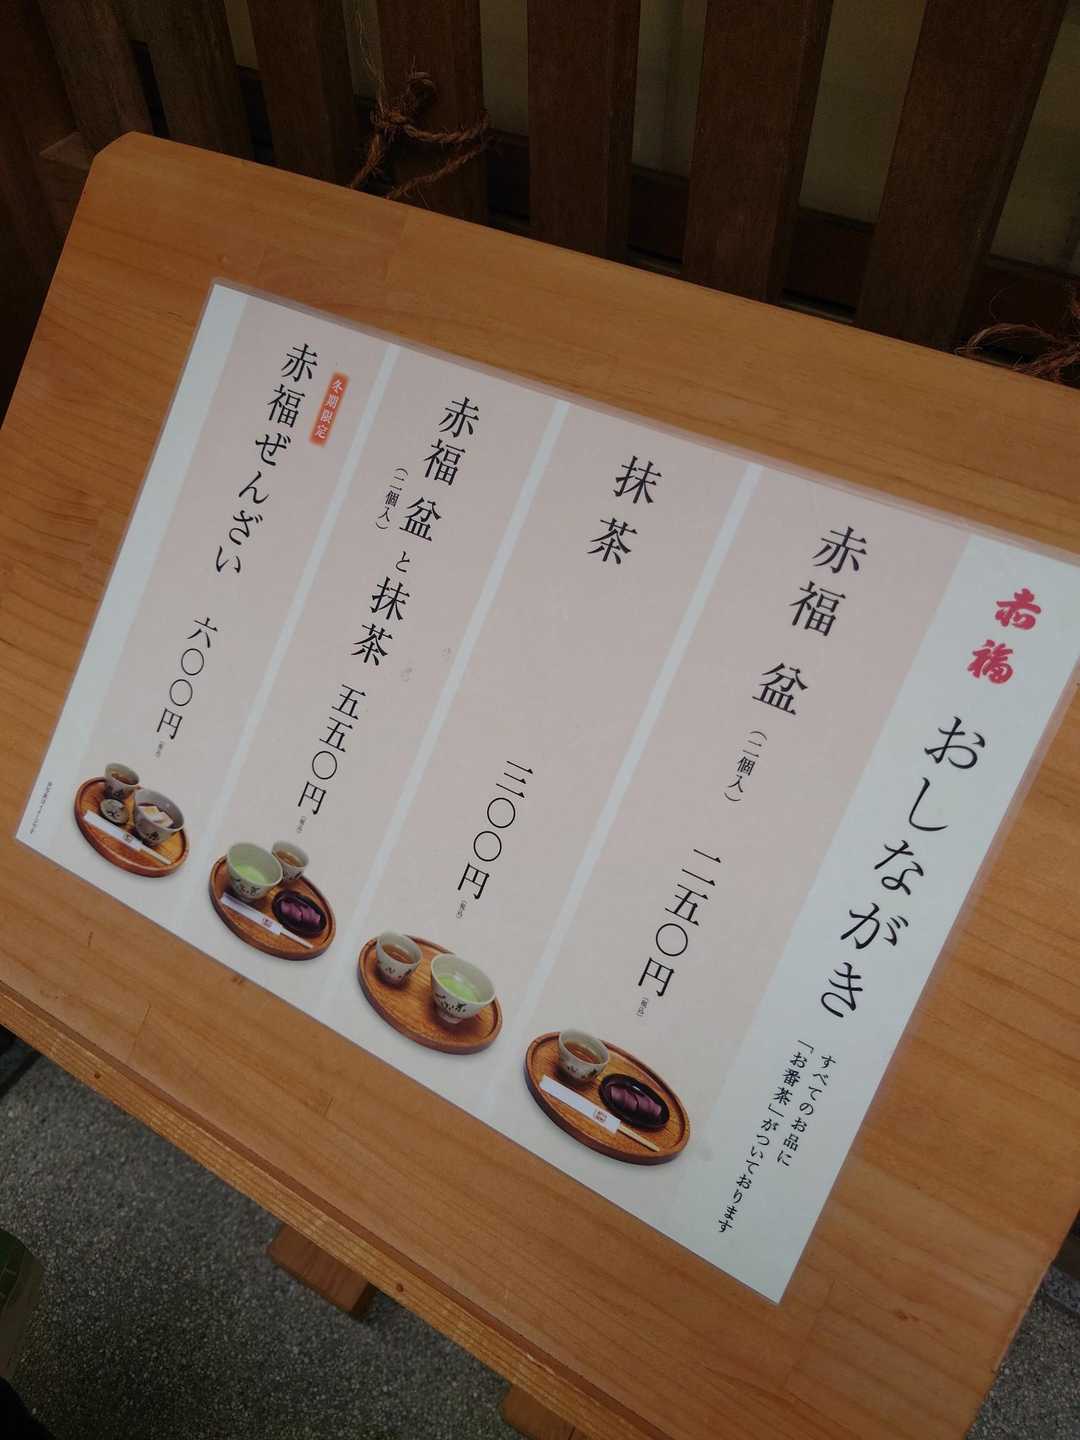 赤福 おしながき
すべてのお品に
「お番茶」がついております
赤福 盆 (二個入) 二五〇円 (税込)
抹茶 三〇〇円 (税込)
赤福 盆 (二個入) と 抹茶 五五〇円 (税込)
冬期限定
赤福ぜんざい 六〇〇円 (税込)